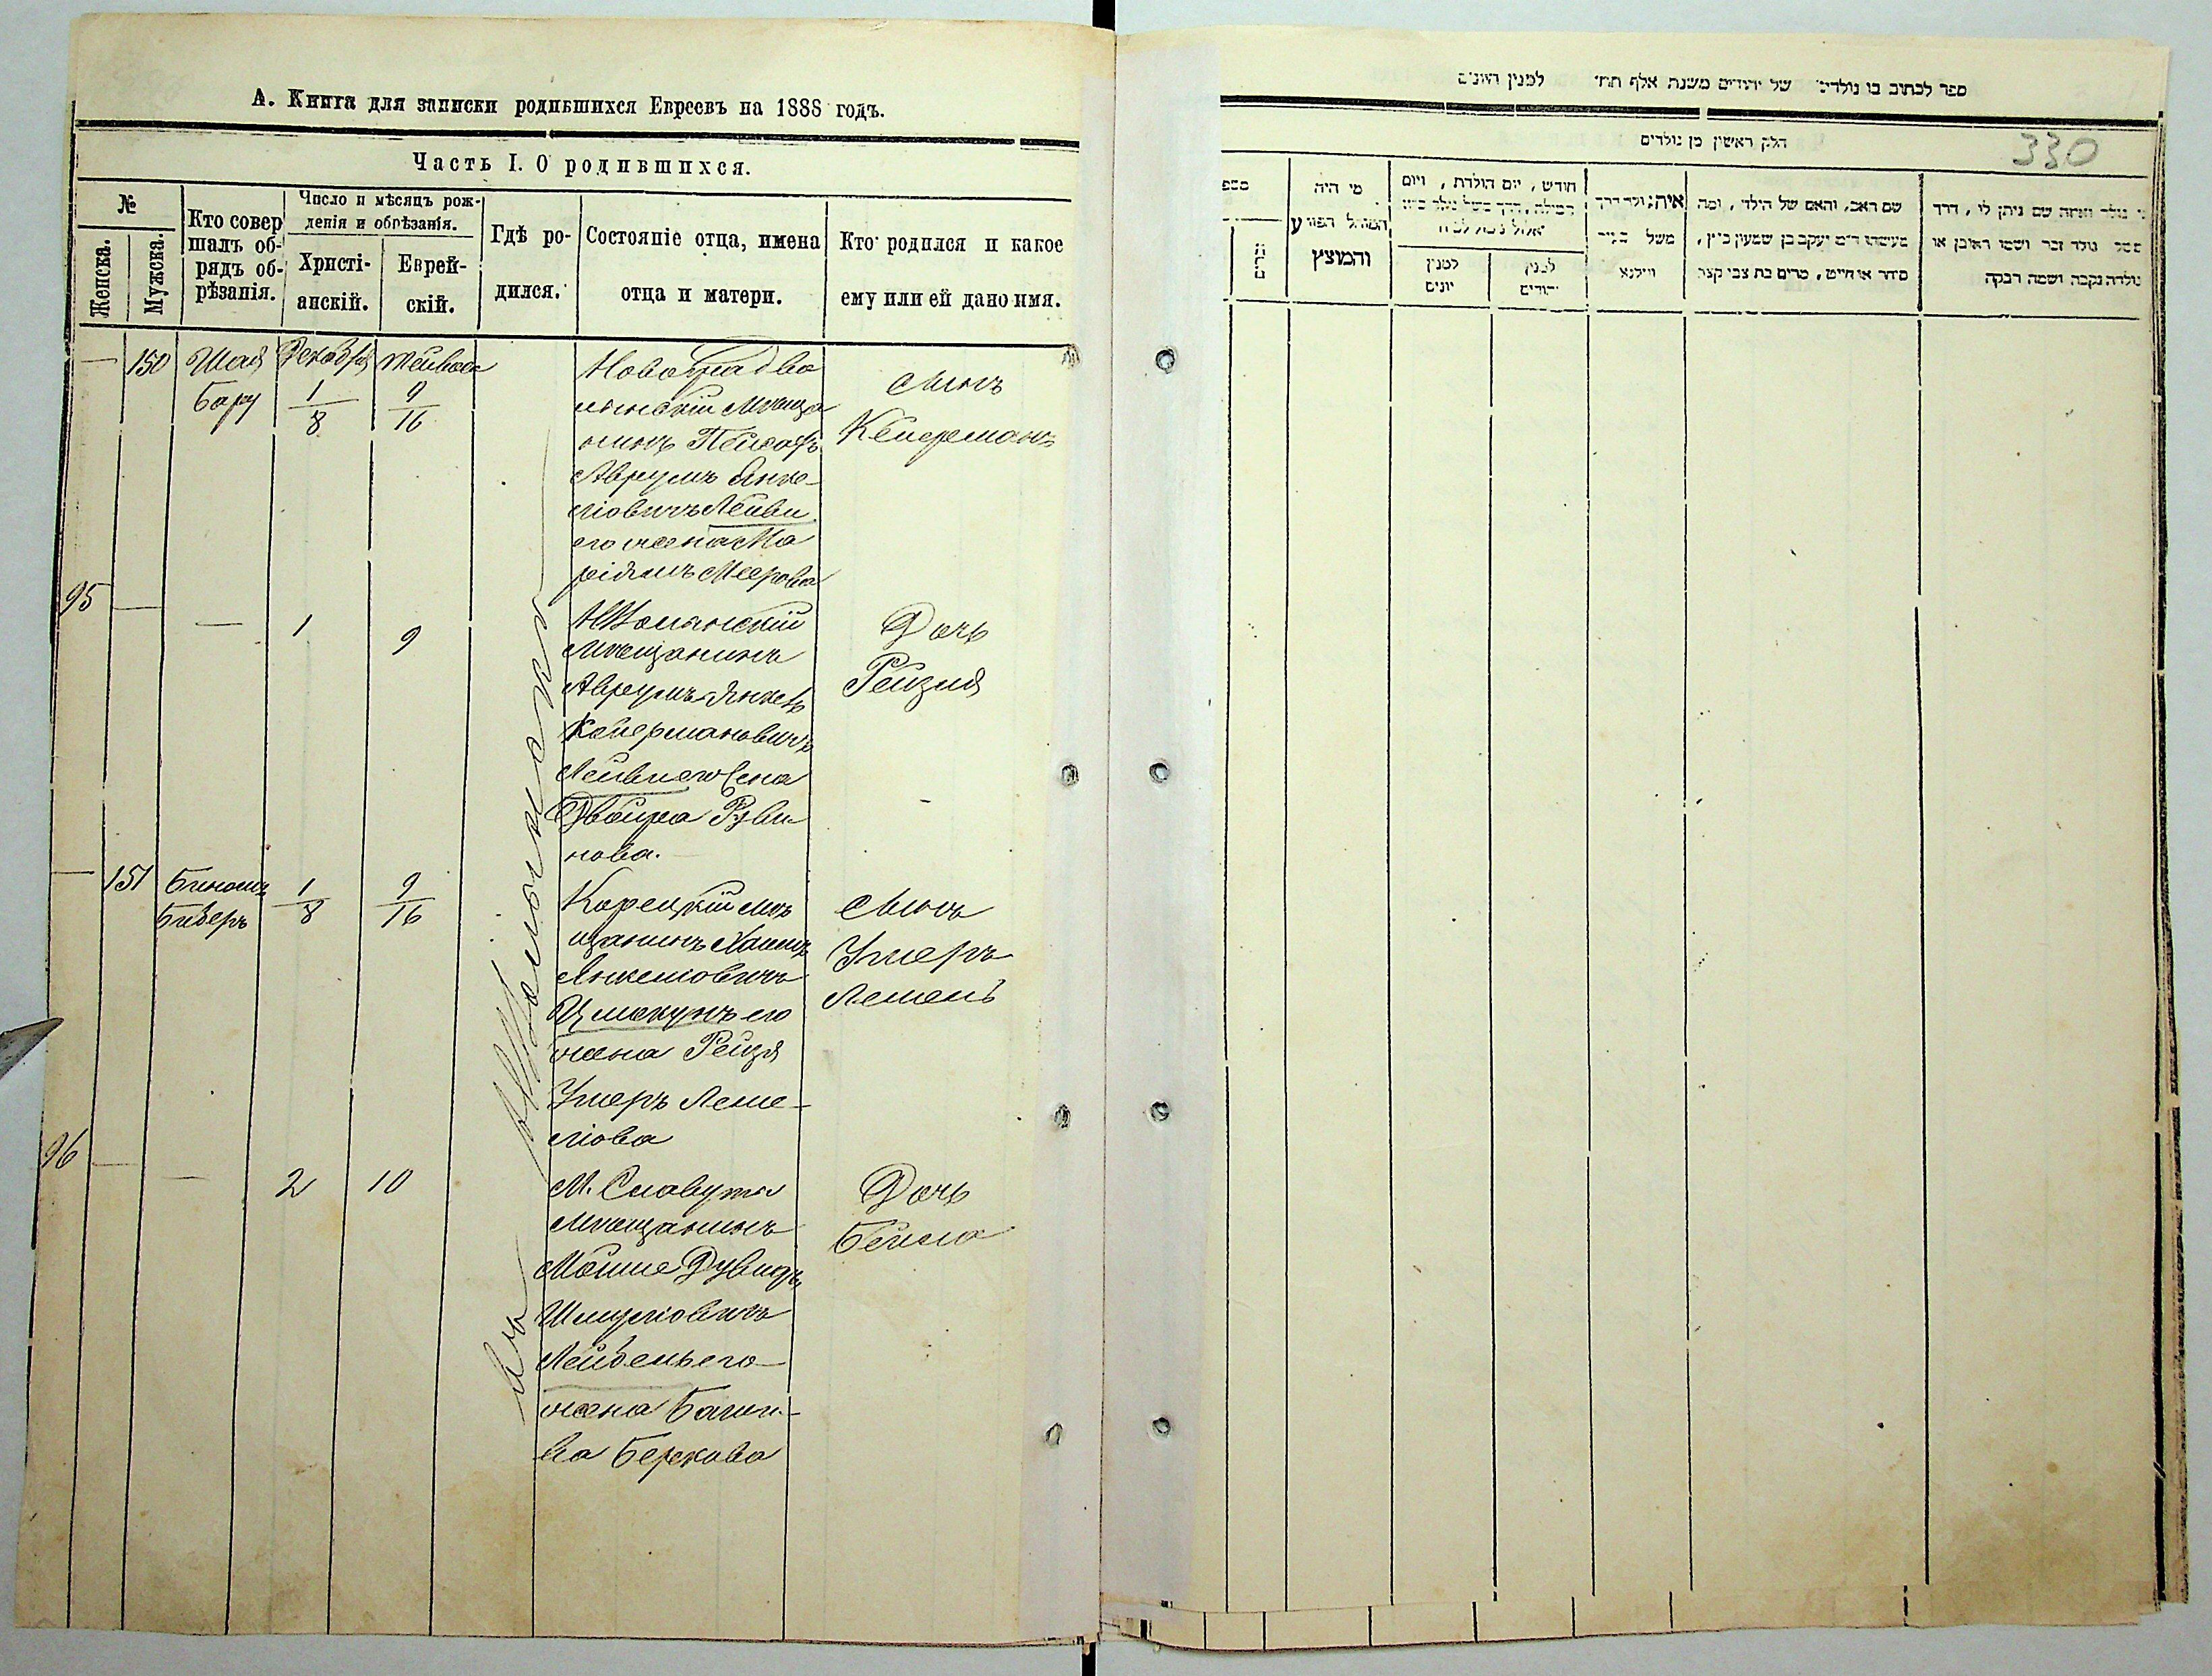 А. Книга для записки родившихся Евреевъ на 1888 годъ.
Часть I. О родившихся.
№
Женска.
Мужска.
Кто совер
шалъ об-
рядъ об-
рѣзанія.
Число и мѣсяцъ рож-
денія и обрѣзанія.
Христі-
анскій.
Еврей-
скій.
Гдѣ ро-
дился.
Состояніе отца, имена
отца и матери.
Кто родился и какое
ему или ей дано имя.
— 150
Шая
Бару
Декабря
1
8
Тейвеса
9
16
Новоградво
лынскій мѣща
нинъ Пейсафъ
Аврумъ Янке-
ліовичъ Лейви
его жена Ма
ріямъ Меерова
сынъ
Кейерманъ
95 —
—
1
9
Аврумъ Янкель
Кейермановичъ
Лейви его жена
Двойра Руви
нова.
мѣщанинъ
Дочь
Рейзия
— 151
Биномъ
Биберъ
1
8
9
16
Корецкій мѣ
щанинъ Хаимъ
Янкеліовичъ
его
жена Рейзя
Умеръ Леме-
ліова
сынъ
Умеръ
96 —
—
2
10
М. Славуты
мѣщанинъ
Мойше Дувидъ
Шмуліовичъ
его
жена Бати-
ва Беркова
Дочь
Бейла
ספר לכתוב בו נולדים של יהודים משנת אלף תת׳ למנין היונים
חלק ראשון מן נולדים
330
מי היה
והמוצץ
חודש, יום הולדת, ויום
למנין
יונים
למנין
יהודים
משל
ווילנא
שם האב, והאם של הילד, ומה
מעשהו ד״מ יעקב בן שמעון כ״ץ,
סוחר או חייט, מרים בת צבי קצב
נולד זכר ושמו ראובן או
נולדה נקבה ושמה רבקה